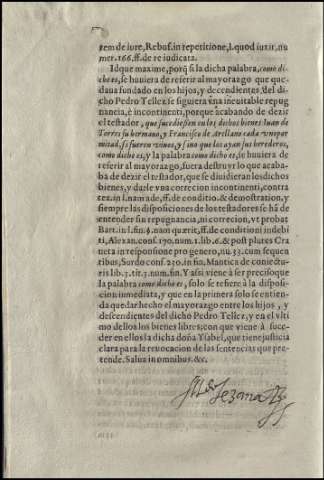 rem de iure, Rebuf. in repetitione, l. quod iussit, nu
mer. 166. ff. de re iudicata.
Idque maxime, porq̃ si la dicha palabra, como di
cho es, se huuiera de referir al mayorazgo que que
daua fundado en los hijos, y decendientes, del di
cho Pedro Tellez, se siguiera vna ineuitable repug
nancia, è incontinenti, porque acabando de dezir
el testador, que sucediessen en los dichos bienes Iuan de
Torres su hermano, y Francisco de Arellano cada vno por
mitad, si fueren viuos, y sino que los ayan sus herederos,
como dicho es, y la palabra como dicho es, si huuiera de
referir al mayorazgo, fuera destruyr lo que acaba
ba de dezir el testador, que se diuidieran los dichos
bienes, y darle vna correcion incontinenti, contra
tex. in l. nam ad ea, ff. de conditio. & demostration, y
siempre las disposiciones de los testadores se hã de
entender sin repugnancia, ni correcion, vt probat
Bart. in l. fin. §. nam quærit, ff. de conditioni indebi
ti, Alexan. cons. 170. num. 1. lib. 6. & post plures Cra
ueta in responsione pro genero, nu. 33. cum sequen
tibus, Surdo cons. 230. in fin. Mantica de coniectu
ris lib. 3. tit. 3. num. fin. Y assi viene à ser preciso que
la palabra como dicho es, solo se refiere à la dispo
sicion inmediata, y que en la primera solo se entien
da quedar hecho el mayorazgo entre los hijos, y
descendientes del dicho Pedro Tellez, y en el vlti
mo dellos los bienes libres: con que viene à suce
der en ellos la dicha doña Ysabel, que tiene justicia
clara para la reuocacion de las sentencias que pre
tende. Salua in omnibus. &c.